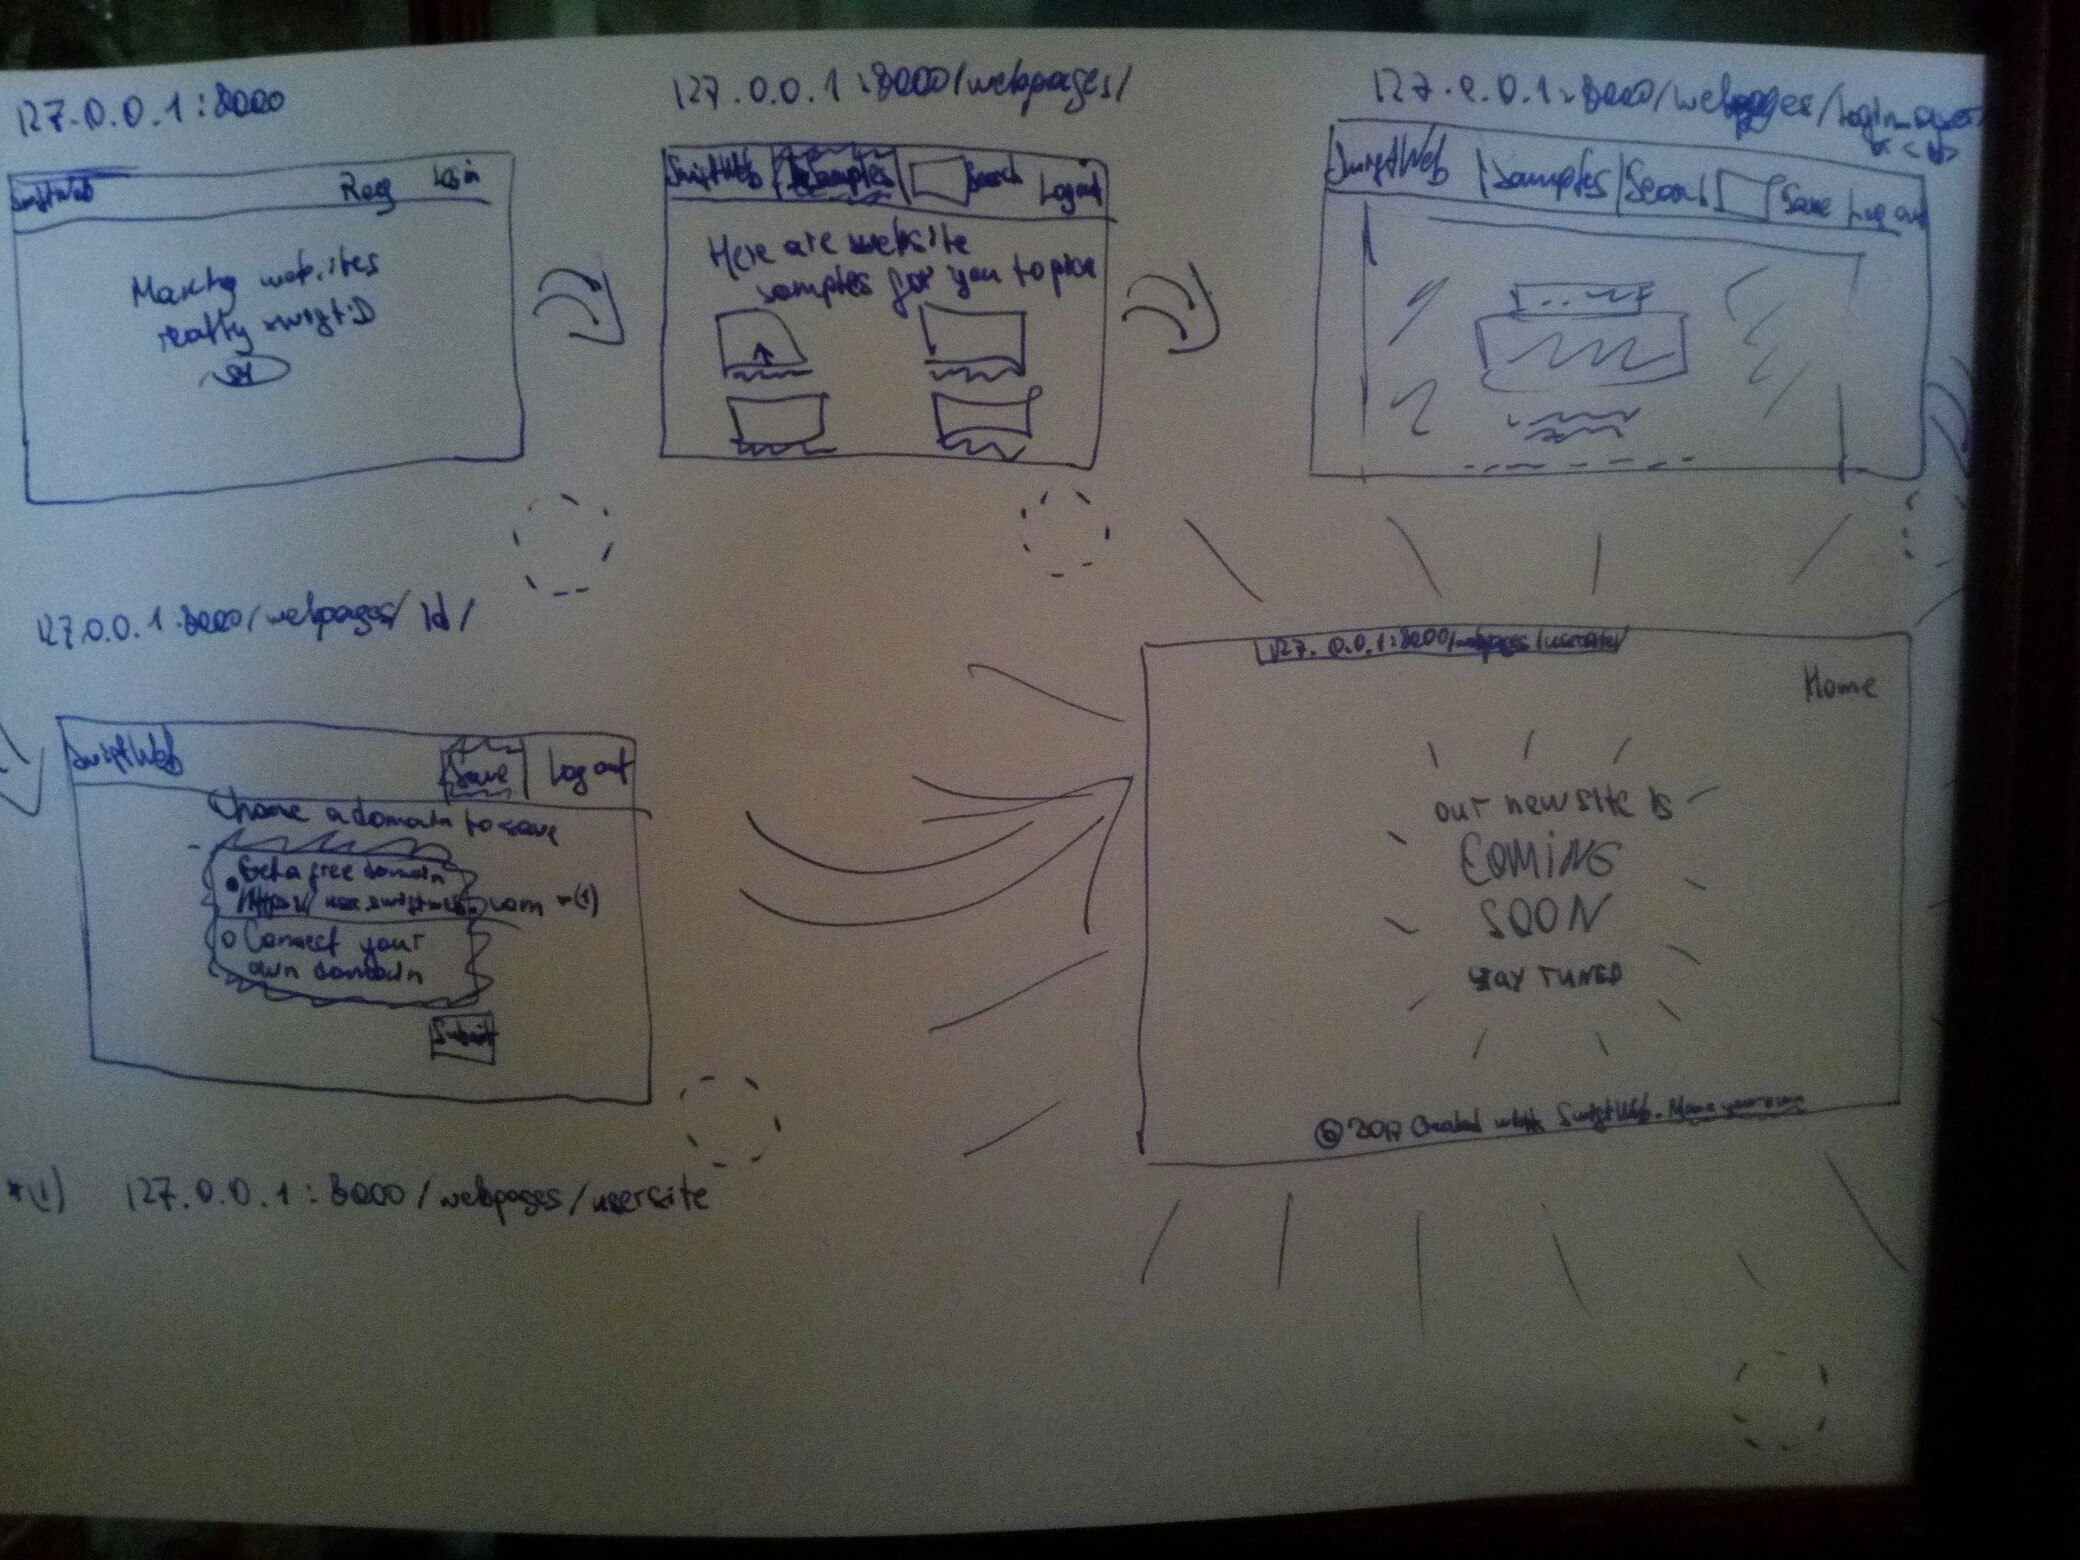 127.0.0.1:8000
SwiftWeb Reg Log in
Making websites
really swift:D
127.0.0.1:8000/webpages/
SwiftWeb Samples Search Log out
Here are website
samples for you to
127.0.0.1:8000/webpages/
SwiftWeb Samples Search Save Log out
127.0.0.1:8000/webpages/id/
SwiftWeb Save Log out
Choose a domain to save
Get a free domain
.com *(1)
Connect your
own domain
Submit
127.0.0.1:8000/webpages/usersite/
Home
our new site is
COMING
SOON
STAY TUNED
© 2017 Created with SwiftWeb. Make your own
*(1) 127.0.0.1:8000/webpages/usersite